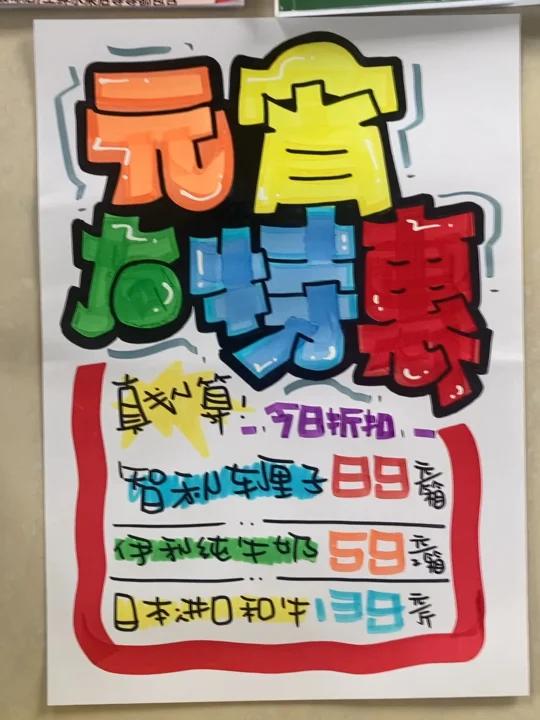 元宵
有特惠
真划算!
今日折扣
智利车厘子89元/箱
伊利纯牛奶59元/箱
日本进口和牛139元/斤